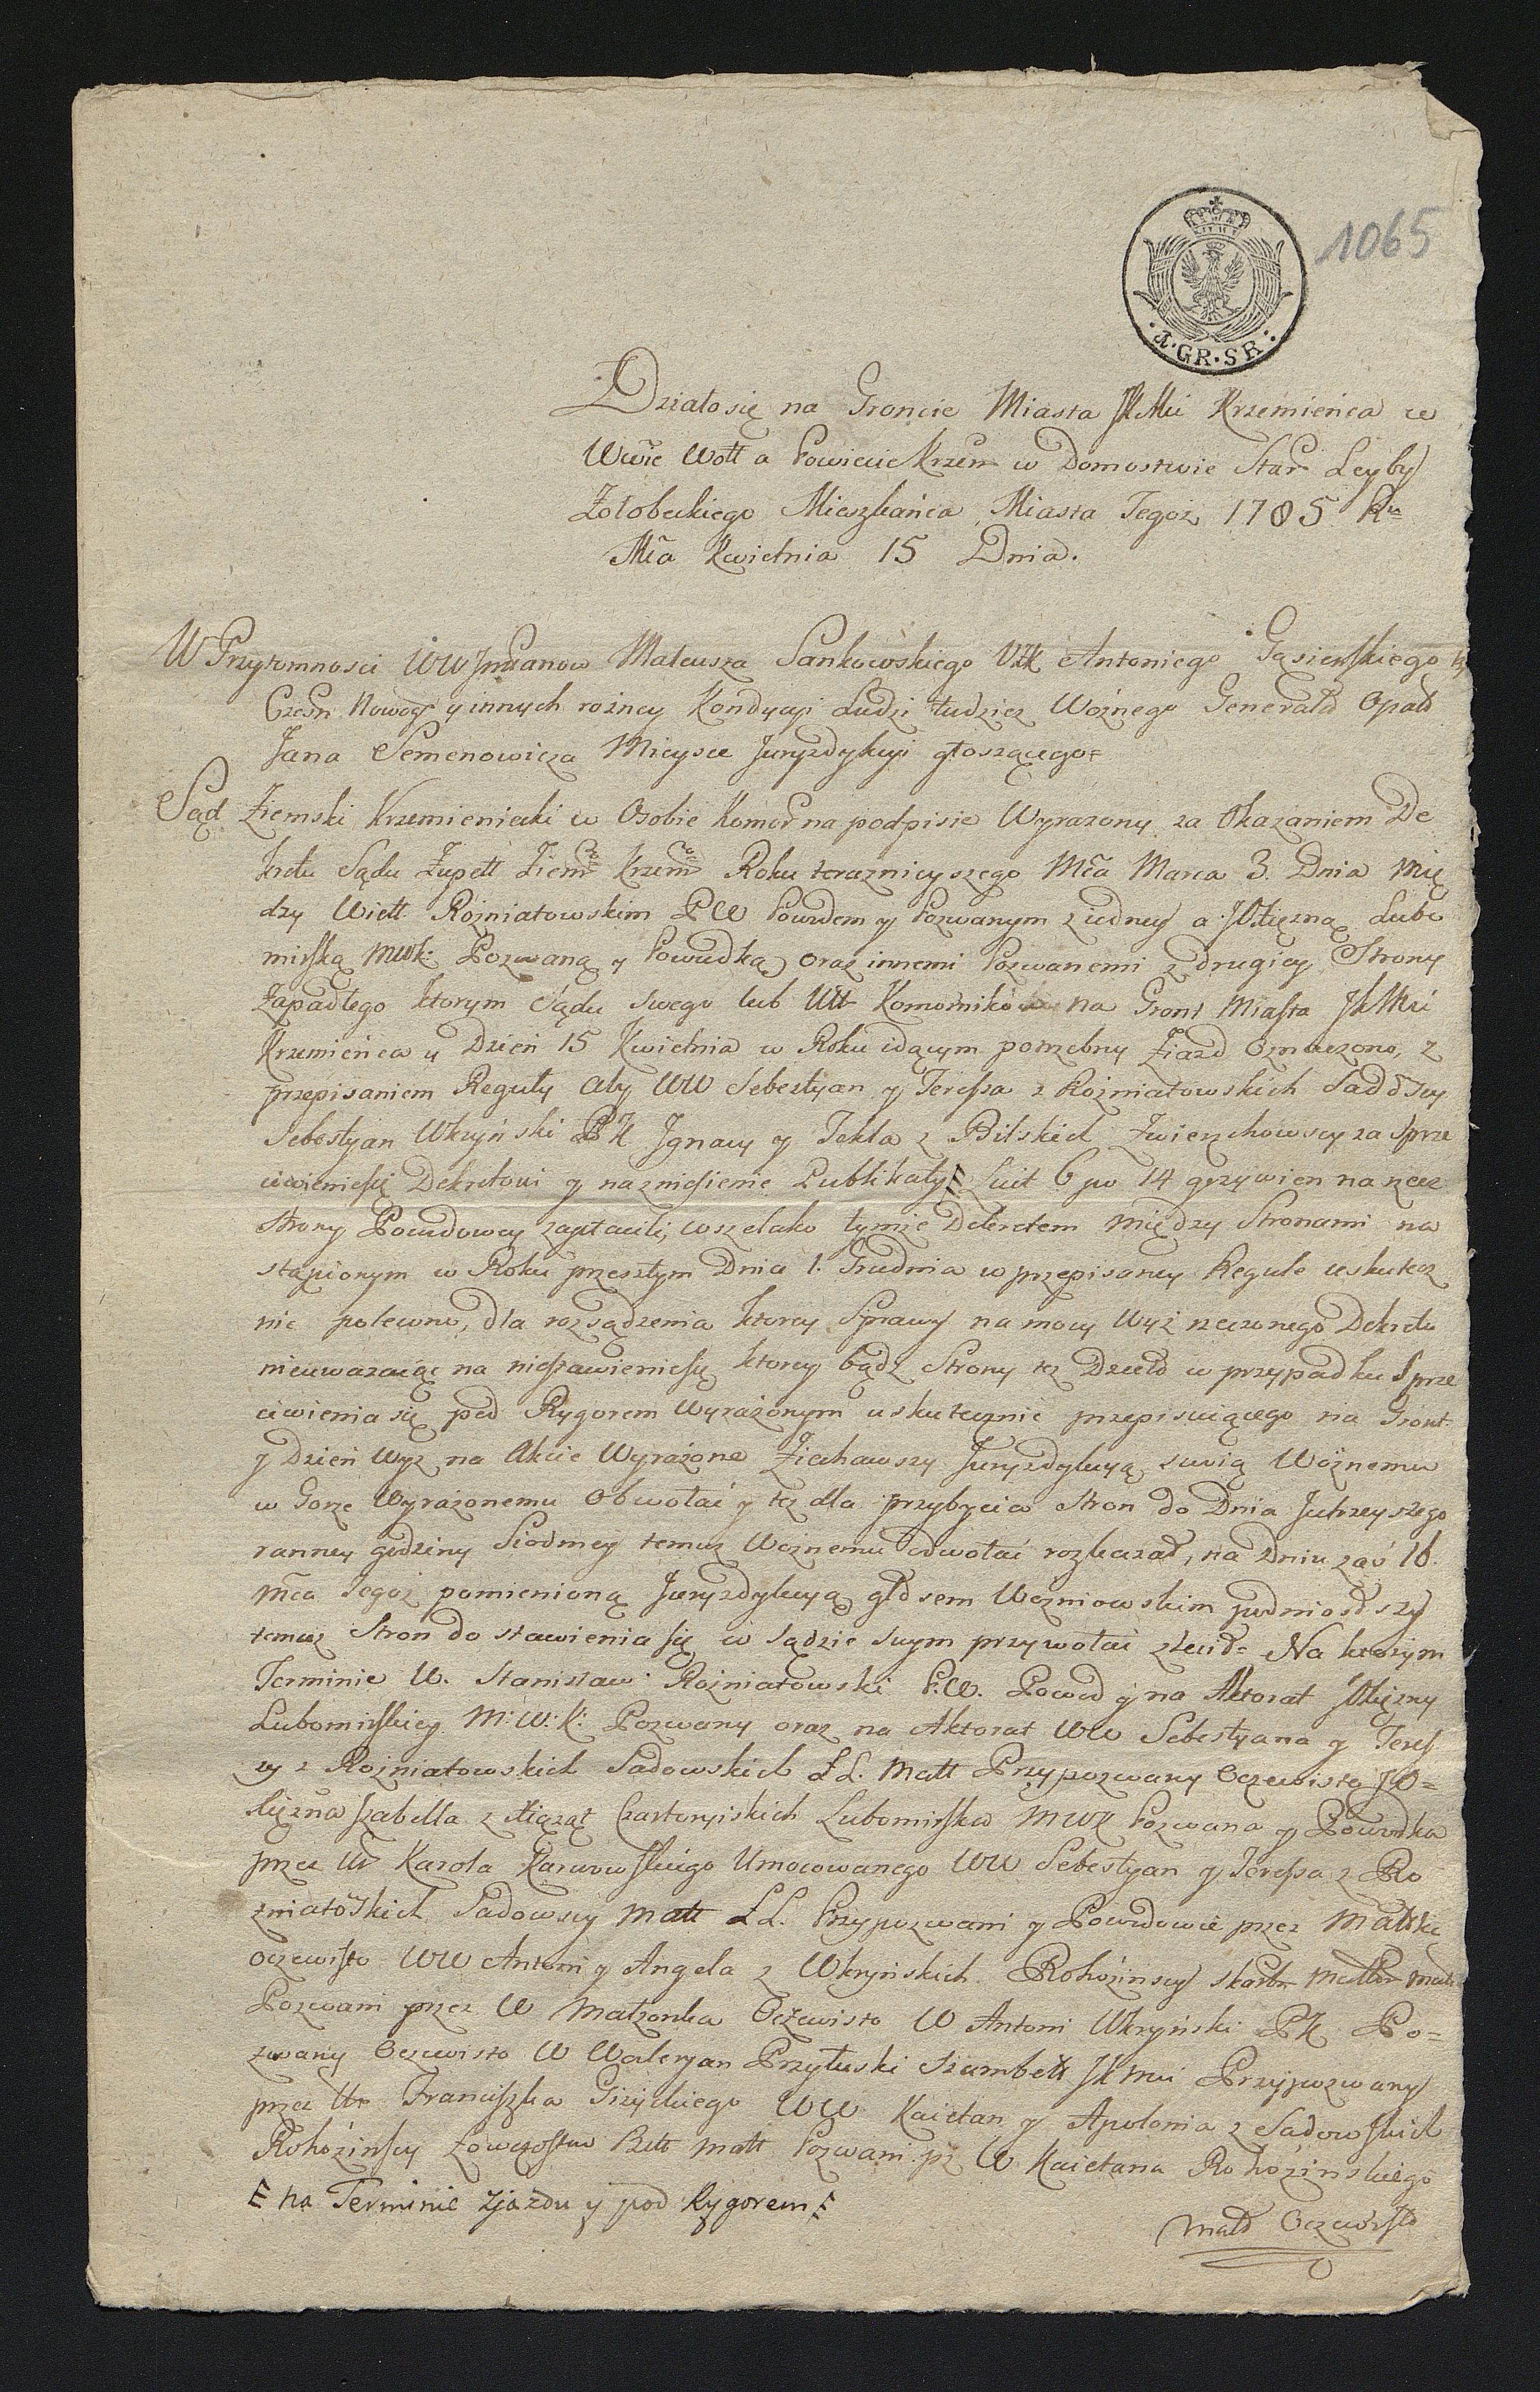 1065
·I·GR·SR·
Działo się na Groncie Miasta JKMci Krzemieńca w
Wwie Woł a Powiecie Krzem w Domostwie Star Leyby
Zołobeckiego Mieszkańca Miasta Tegoż 1785 Ru
Mca Kwietnia 15 Dnia.
W Przytomnosci WW Jmcianow Mateusza Sankowskiego Antoniego Gąsiewskiego
Czesn Nowog y innych rożney Kondycyi Ludzi tudziesz Woźnego Generała Opatr
Jana Semenowicza Mieysce Juryzdykcyi głoszącego=
Sąd Ziemski Krzemieniecki w Osobie Komor na podpisie Wyrażony za Okazaniem De
kretu Sądu Zupełł Ziem Krzem Roku teraznieyszego Mca Marca 3. Dnia Mię
dzy Wiell Rożniatowskim PW Powdem y Pozwanym z iedney a JOXiężną Lubo
mirską MWK: Pozwaną y Powudką oraz innemi Pozwanemi z drugiey Strony
Zapadłego ktorym Sądu swego lub Ur Komornikow na Gront Miasta JKMci
Krzemieńca y Dzień 15 Kwietnia w Roku idącym potrzebny Ziazd Oznaczono, z
przepisaniem Reguły Aby WW Sebestyan y Teressa z Rożniatowskich Sadowscy
Sebestyan Wkryński PK Jgnacy y Tekla z Bilskich Zwierzchowscy za Sprze
ciwieniesię Dekretowi y na zniesienie Publikaty Luit 6 po 14 grzywien na rzecz
Strony Powodowey zapłacili, wszelako tymże Dekretem między Stronami na
stąpionym w Roku przeszłym Dnia 1. Grudnia w przepisaney Regule uskutecz
nic polecono, dla rozsądzenia ktorey Sprawy na mocy Wyż rzeczonego Dekretu
nieuwazaiąc na niestawieniesię ktorey bądź Strony tez Dzieło w przypadku Sprze
ciwienia się pod Rygorem Wyrażonym uskutecznić przepisuiącego na Gront
y Dzień Wyż na Akcie Wyrażone Ziechawszy Juryzdykcyą swoią Woźnemu
w Gorze Wyrażonemu Obwołać y tez dla przybycia Stron do Dnia Jutrzeyszego
ranney godziny Siodmey temuz Woznemu odwołać rozkazał, na Dniu zaś 16.
Mca Tegoż pomienioną Juryzdykcyą głosem Wozniowskim podniosłszy
temuz Stron do stawienia się w Sądzie swym przywołać zlecił= Na ktorym
Terminie W. Stanisław Rożniatowski P.W. Powod y na Aktorat JOXiężny
Lubomirskiey M:W:K: Pozwany oraz na Aktorat WW Sebestyana y Teres
sy z Rożniatowskich Sadowskich LL. Małł Przypozwany Oczewisto JO=
Xiężna Jzabella z Xiążąt Czartoryiskich Lubomirska MWK Pozwana y Powodka
przez Ur Karola Karwowskiego Umocowanego WW Sebestyan y Teressa z Ro
zniatowskich Sadowscy Małł LL. Przypozwani y Powodowie przez Małżkę
Oczewisto WW Antoni y Angela z Wkryńskich Rohozinscy Skarb Małł
Pozwani przez W Małżonka Oczewisto W Antoni Wkryński PK Po=
zwany Oczewisto W Waleryan Przyłuski Szambell JKMci Przypozwany
przez Ur Franciszka Giżyckiego WW Kaietan y Apolonia z Sadowskich
Rohozinscy Łowczostwo Bełł Małł Pozwani pz W Kaietana Rohozinskiego
na Terminie Zjazdu y pod Rygorem
Małż Oczewisto